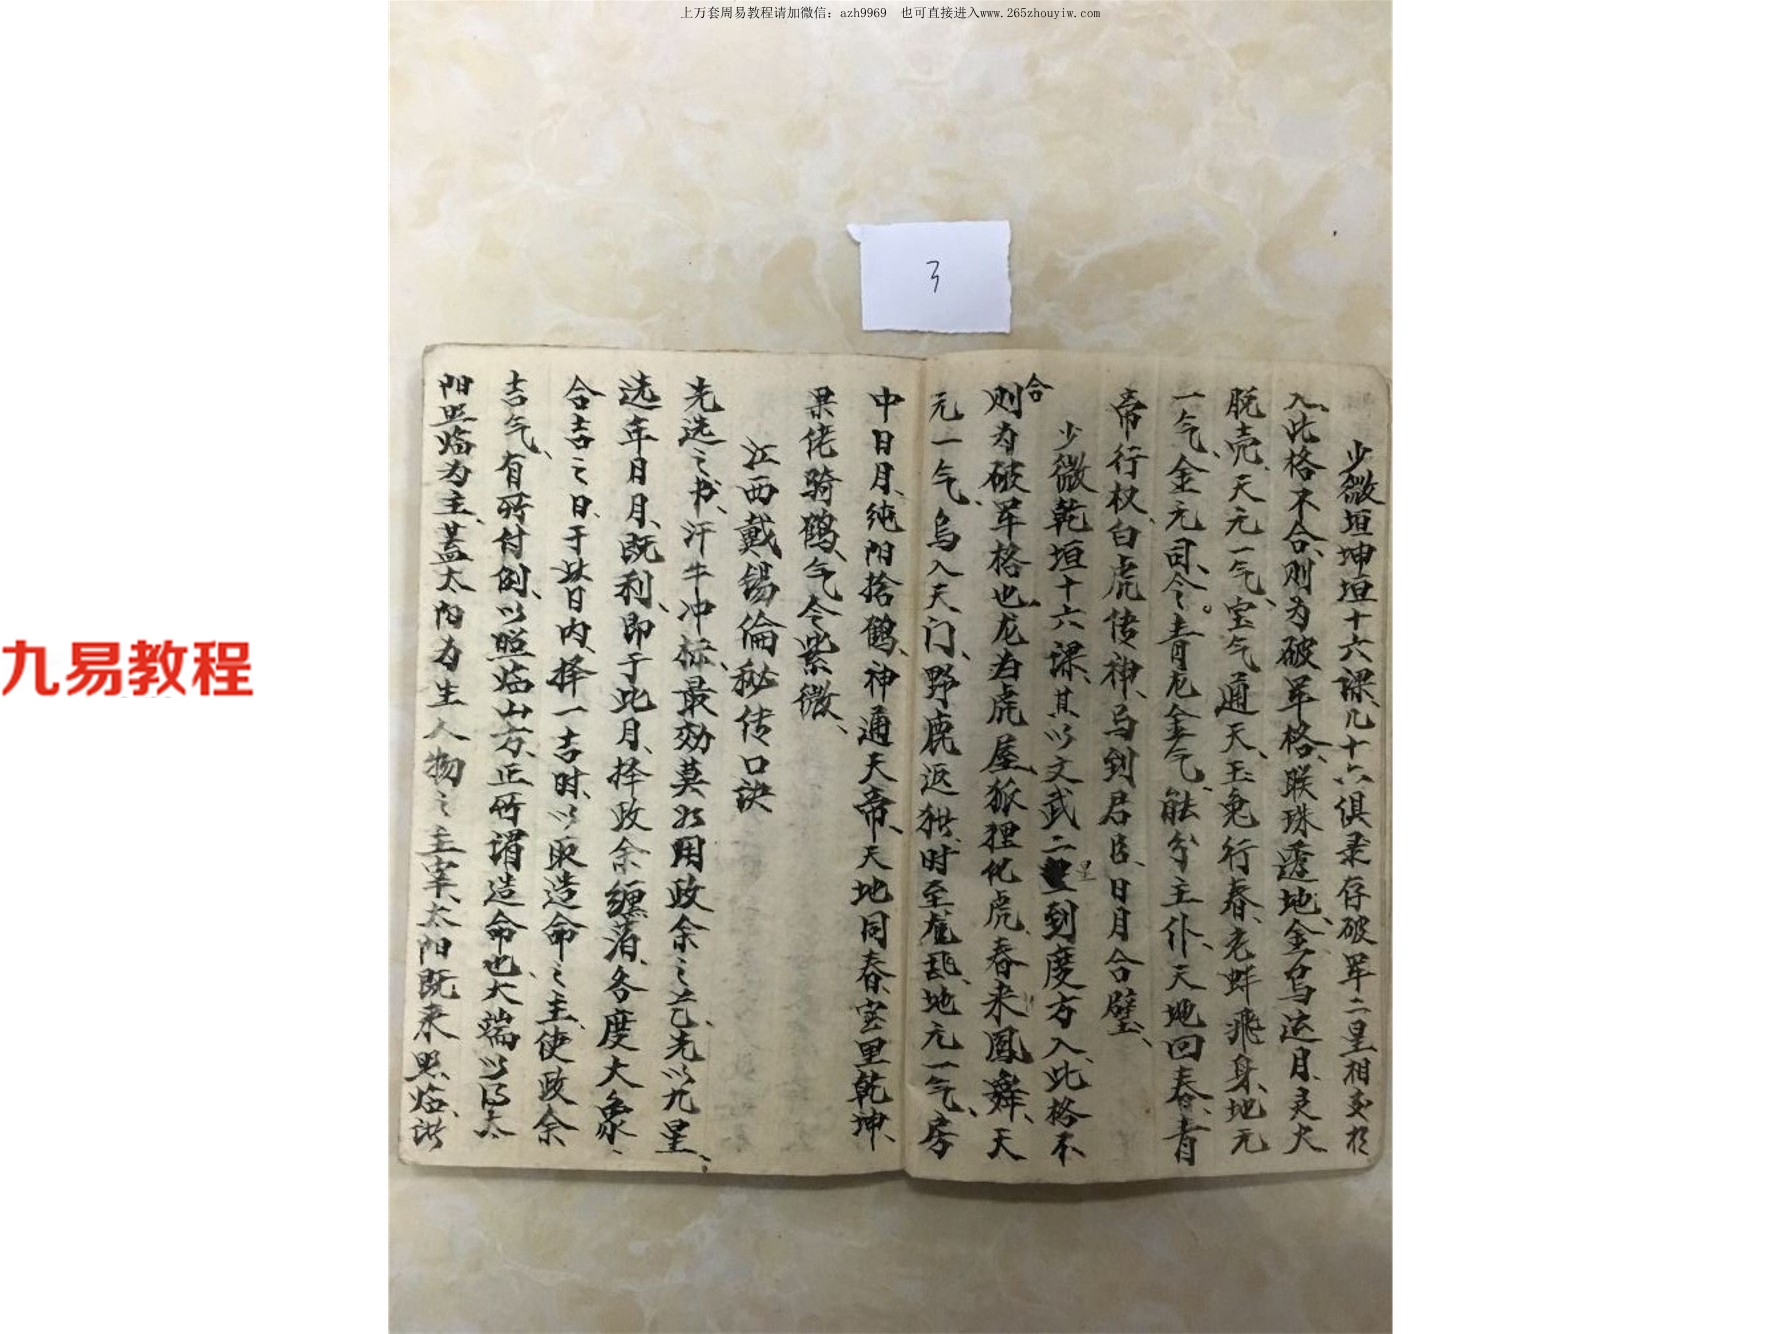 上万套周易教程请加微信：azh9969 也可直接进入www.265zhouyiw.com
3
九易教程
少微垣坤垣十六课、凡十六俱录存破军二星相交于
入、此格不合、则为破军格、联珠透地、金乌运月、灵犬
脱壳、天元一气、宝气通天、玉兔行春、老蚌飛身、地元
一气、金元司令。青龙金气、能分主仆、天地回春、青
帝行权、白虎传神、马到君臣、日月合璧、
少微乾垣十六课、其以文武二星到度方入、此格不
合
则为破军格也、龙为虎屋、狐狸化虎、春来鳳舞、天
元一气、乌入天门、野鹿返 时至 地元一气、房
中日月、纯阳捨鹤、神通天帝、天地同春、室里乾坤、
果佬骑鹤、气令紫微、
江西戴锡倫秘传口诀
先选之书、汗牛冲标、最効莫如用政余之艺、先以九星、
选年日月、既利、即于此月、择政余缠落、各度大象、
合吉之日、于此日内、择一吉时、以取造命之主、使政余
吉气、有所付倒、以照临山方、正所谓造命也、大端以得太
阳照临为主、蓋太阳为生人物之主宰、太阳既来照临、諸